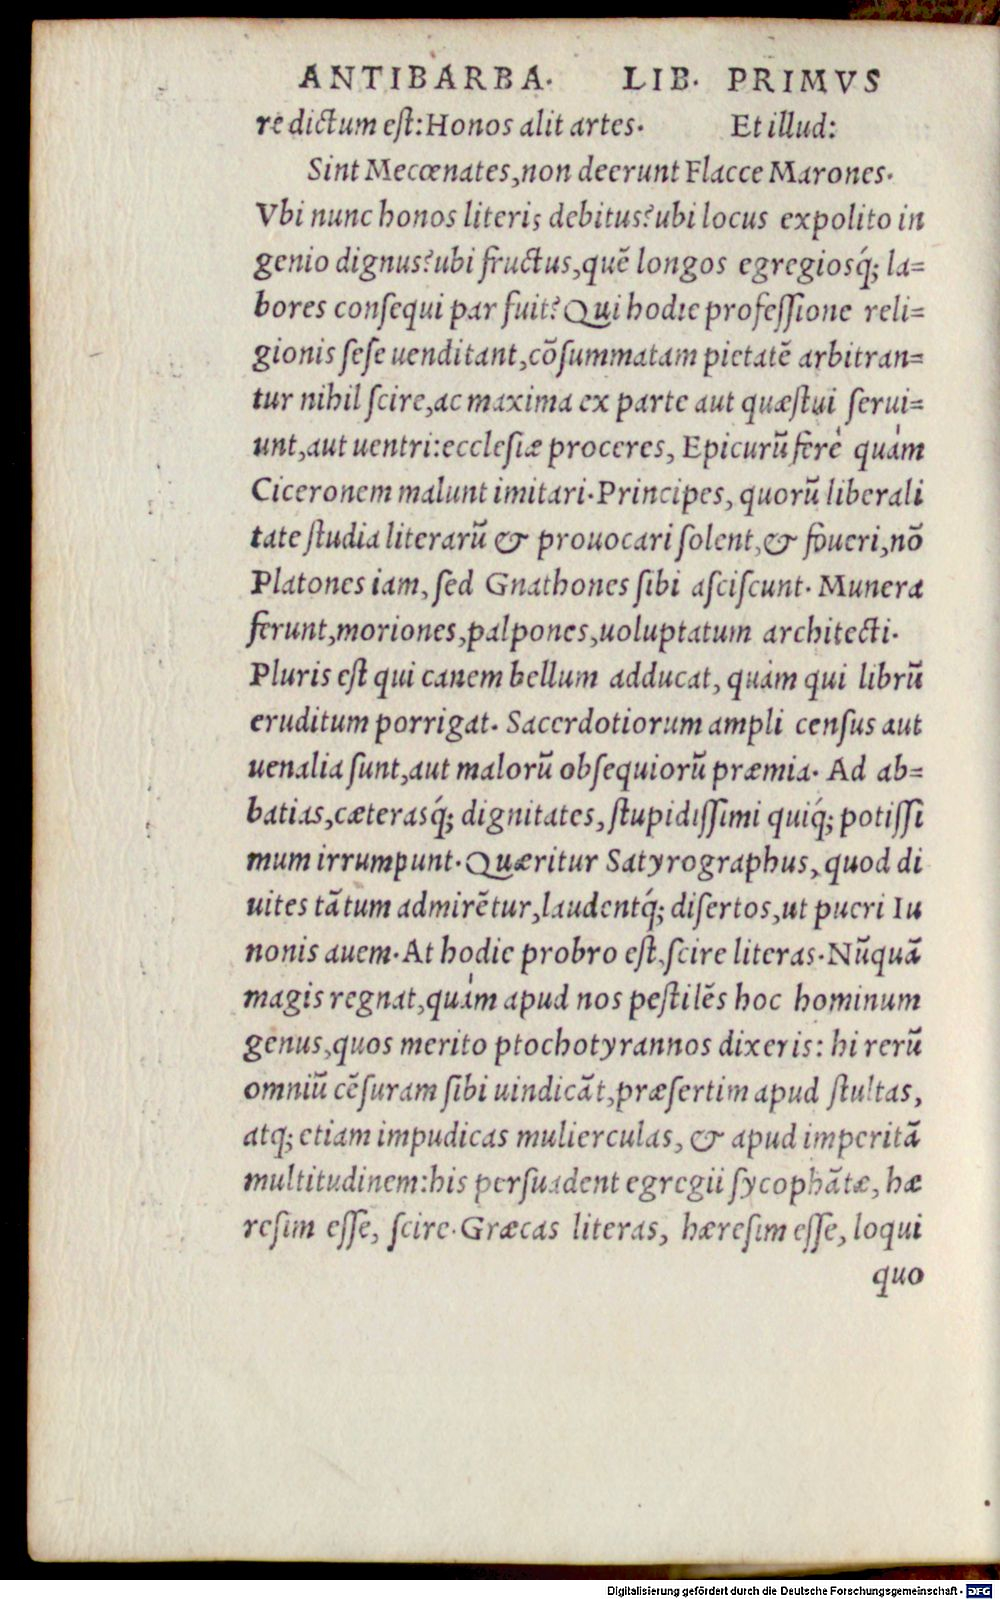 ANTIBARBA. LIB. PRIMVS
re dictum eſt: Honos alit artes. Et illud:
Sint Mecœnates, non deerunt Flacce Marones.
Vbi nunc honos literis debitus? ubi locus expolito in
genio dignus? ubi fructus, quē longos egregiosq́; la=
bores conſequi par fuit? Qui hodie profeſſione reli=
gionis ſeſe uenditant, cōſummatam pietatē arbitran=
tur nihil ſcire, ac maxima ex parte aut quæſtui ſerui=
unt, aut uentri: eccleſiæ proceres, Epicurū ferè quàm
Ciceronem malunt imitari. Principes, quorū liberali
tate ſtudia literarū & prouocari ſolent, & foueri, nō
Platones iam, ſed Gnathones ſibi aſciſcunt. Munera
ferunt, moriones, palpones, uoluptatum architecti.
Pluris eſt qui canem bellum adducat, quàm qui librū
eruditum porrigat. Sacerdotiorum ampli cenſus aut
uenalia ſunt, aut malorū obſequiorū præmia. Ad ab=
batias, cæterasq́; dignitates, ſtupidiſſimi quiq́; potiſſi
mum irrumpunt. Quæritur Satyrographus, quod di
uites tātum admirētur, laudentq́; diſertos, ut pueri Iu
nonis auem. At hodie probro eſt, ſcire literas. Nūquā
magis regnat, quàm apud nos peſtilēs hoc hominum
genus, quos merito ptochotyrannos dixeris: hi rerū
omniū cēſuram ſibi uindicāt, præſertim apud ſtultas,
atq; etiam impudicas mulierculas, & apud imperitā
multitudinem: his perſuadent egregii ſycophātæ, hæ
reſim eſſe, ſcire. Græcas literas, hæreſim eſſe, loqui
quo
Digitalisierung gefördert durch die Deutsche Forschungsgemeinschaft - DFG